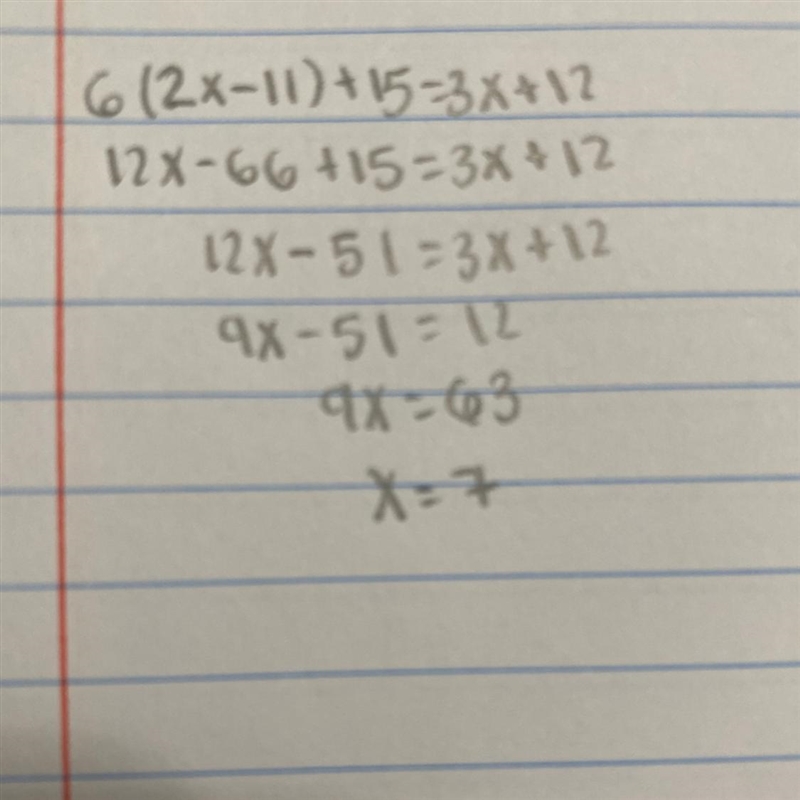 6(2x-11)+15=3x+12
12x-66+15=3x+12
12x-51=3x+12
9x-51=12
9x=63
x=7